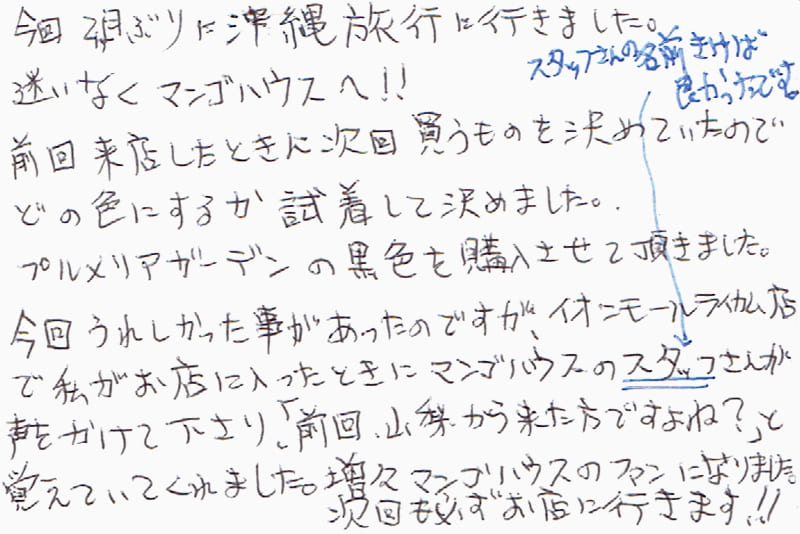 今回 2ヶ月ぶりに沖縄旅行に行きました。
迷いなくマンゴハウスへ!!
スタッフさんの名前きけば
良かったです。
前回来店したときに次回買うものを決めていたので
どの色にするか試着して決めました。
プルメリアガーデンの黒色を購入させて頂きました。
今回うれしかった事があったのですが、イオンモールライカム店
で私がお店に入ったときにマンゴハウスのスタッフさんが
声をかけて下さり、「前回、山梨から来た方ですよね?」と
覚えていてくれました。増々マンゴハウスのファンになりました。
次回も必ずお店に行きます!!